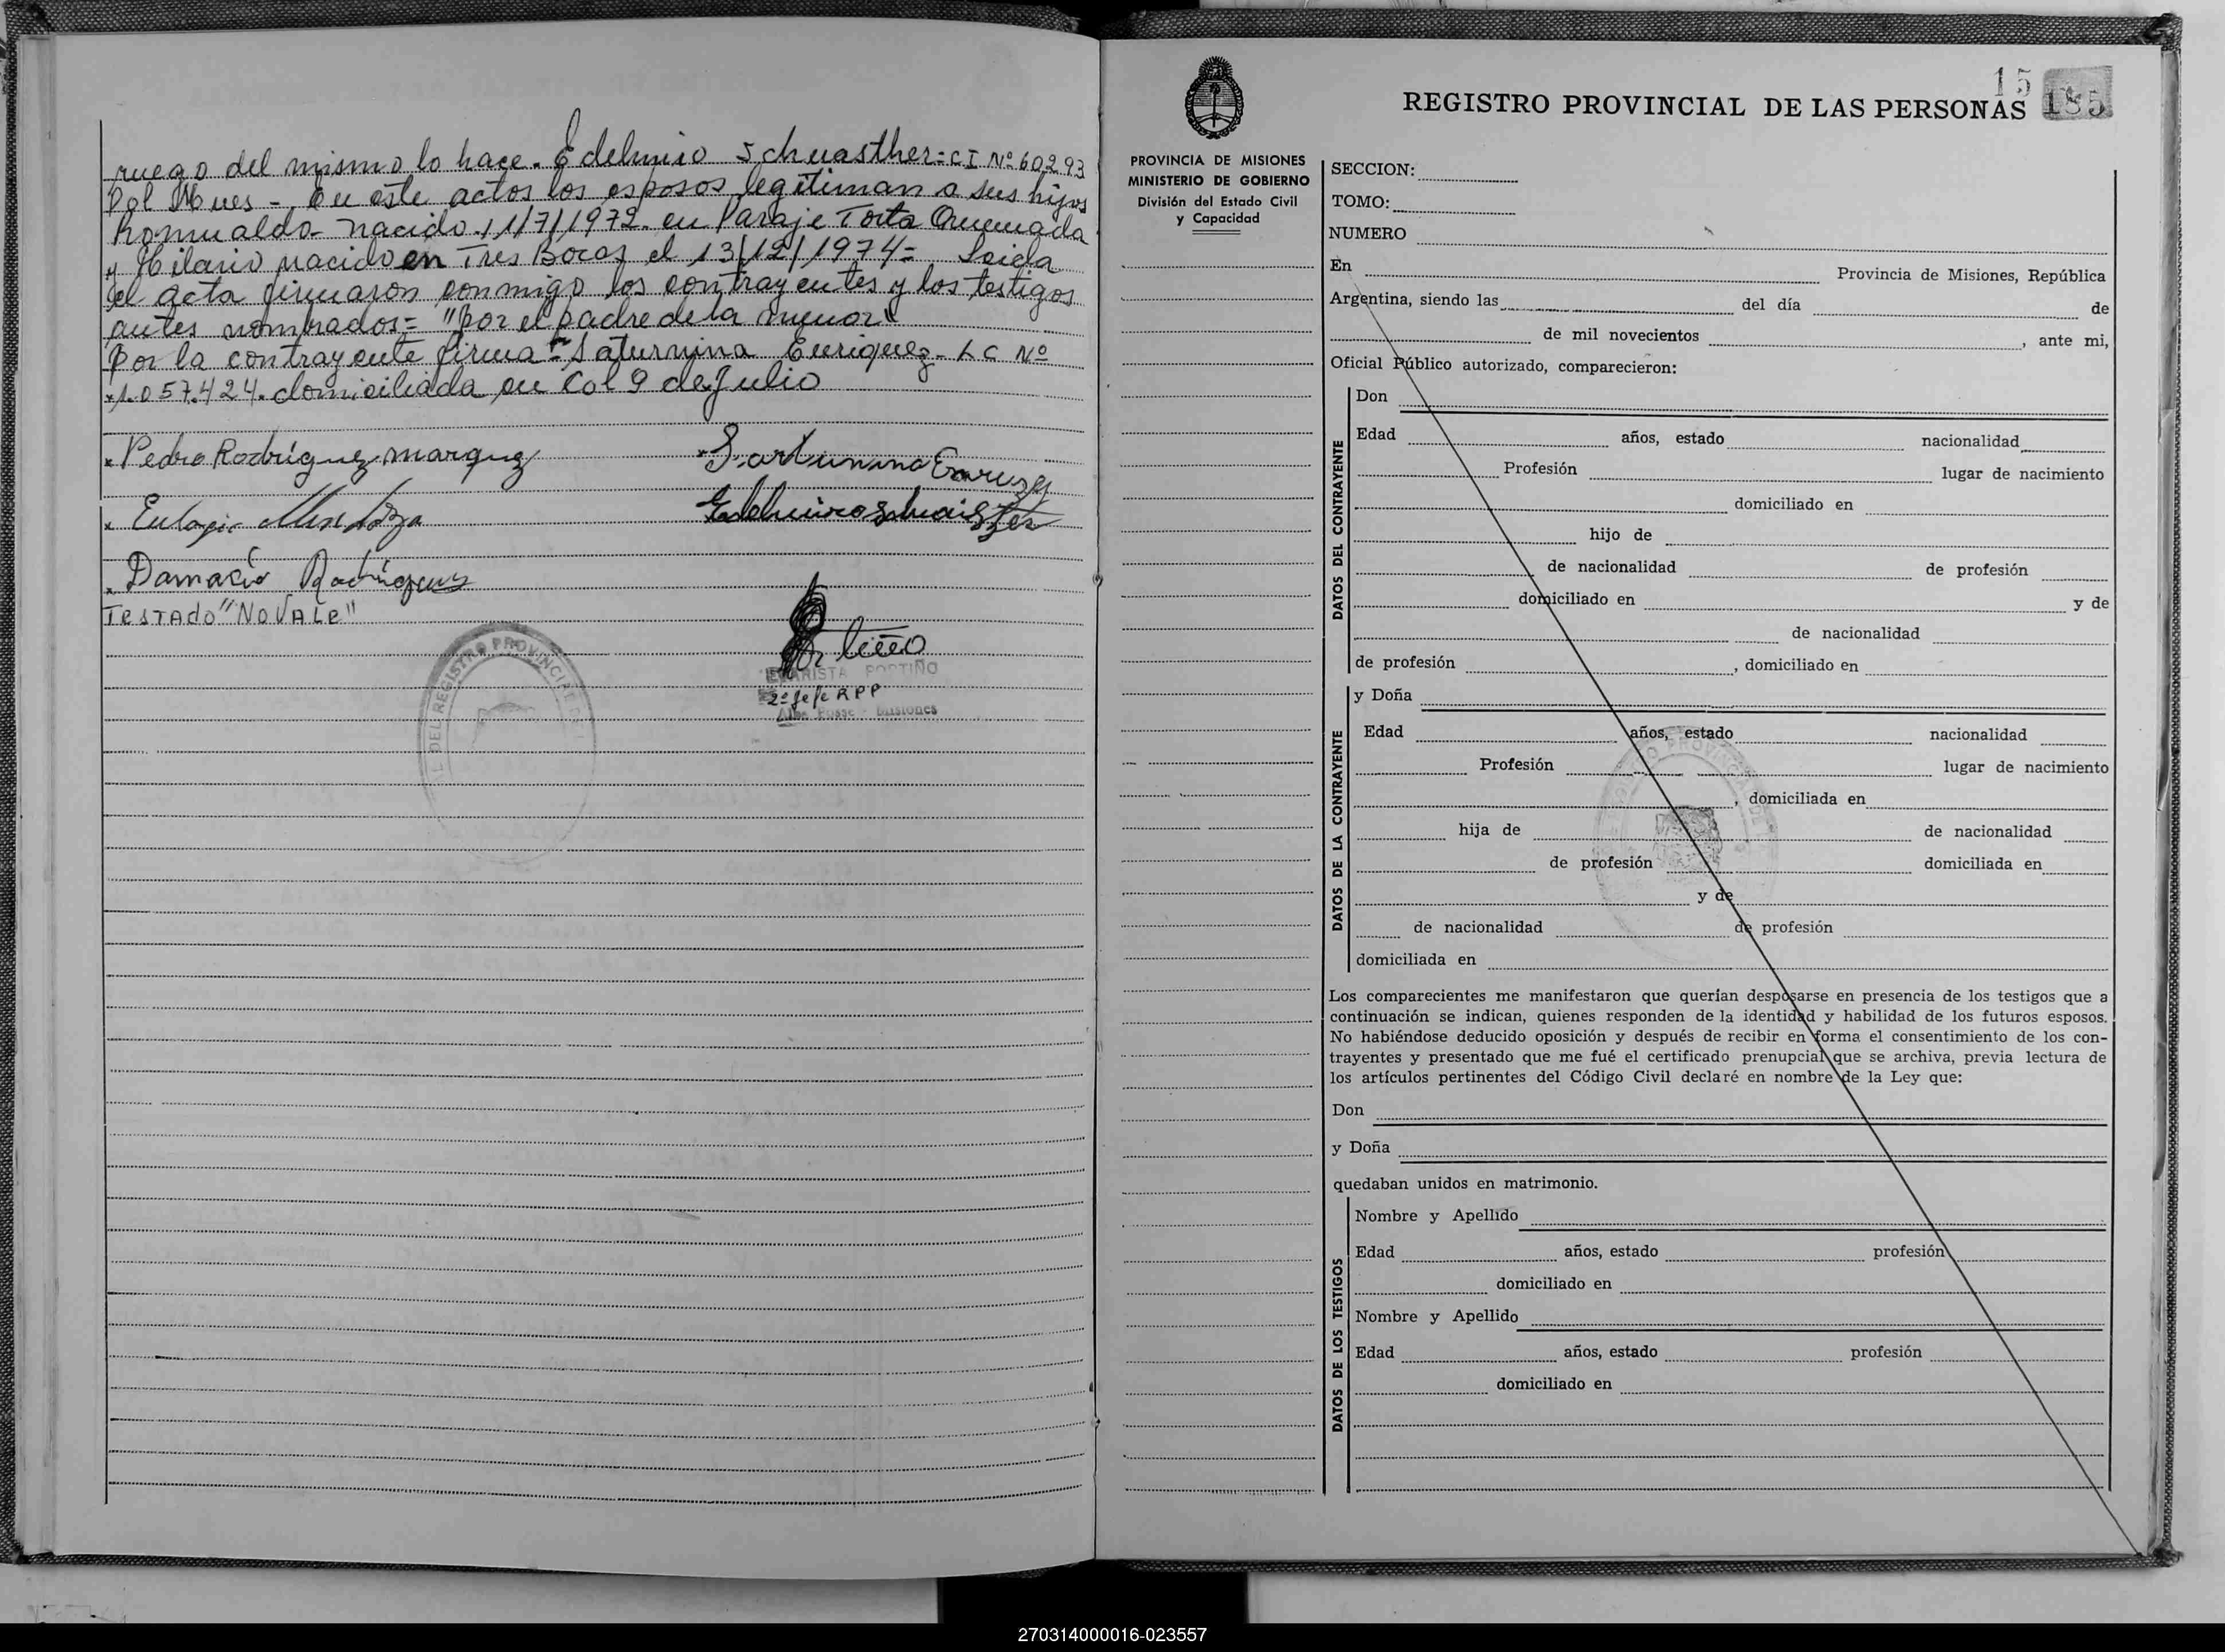 ruego del mismo lo hace. Edelmiro Schuasther=CI Nº 60293
Pol Mnes - En este actos los esposos legitiman a sus hijos
Romualdo- nacido 11/7/1972 en Paraje Torta Quemada
y Hilario nacido en Tres Bocas el 13/12/1974= Leida
el acta firmaron conmigo los contrayentes y los testigos
antes nombrados= "por el padre de la menor"
Por la contrayente firma= Saturnina Enriquez- LC Nº
1.057.424. domiciliada en Col 9 de Julio
Pedro Rodriguez marquez
Eulogio Mendoza
Damacio Rodriguez
TESTADO "NO VALE"
EVARISTA PORTIÑO
2º Jefe RPP
Alba Posse - Misiones
DEL REGISTRO PROVINCIAL DE
15
REGISTRO PROVINCIAL DE LAS PERSONAS 185
PROVINCIA DE MISIONES
MINISTERIO DE GOBIERNO
División del Estado Civil
y Capacidad
SECCION:
TOMO:
NUMERO
En Provincia de Misiones, República
Argentina, siendo las del día de
de mil novecientos , ante mi,
Oficial Público autorizado, comparecieron:
DATOS DEL CONTRAYENTE
Don
Edad años, estado nacionalidad
Profesión lugar de nacimiento
domiciliado en
hijo de
de nacionalidad de profesión
domiciliado en y de
de nacionalidad
de profesión , domiciliado en
DATOS DE LA CONTRAYENTE
y Doña
Edad años, estado nacionalidad
Profesión lugar de nacimiento
, domiciliada en
hija de de nacionalidad
de profesión domiciliada en
y de
de nacionalidad de profesión
domiciliada en
Los comparecientes me manifestaron que querían desposarse en presencia de los testigos que a
continuación se indican, quienes responden de la identidad y habilidad de los futuros esposos.
No habiéndose deducido oposición y después de recibir en forma el consentimiento de los con-
trayentes y presentado que me fué el certificado prenupcial que se archiva, previa lectura de
los artículos pertinentes del Código Civil declaré en nombre de la Ley que:
Don
y Doña
quedaban unidos en matrimonio.
DATOS DE LOS TESTIGOS
Nombre y Apellido
Edad años, estado profesión
domiciliado en
Nombre y Apellido
Edad años, estado profesión
domiciliado en
270314000016-023557